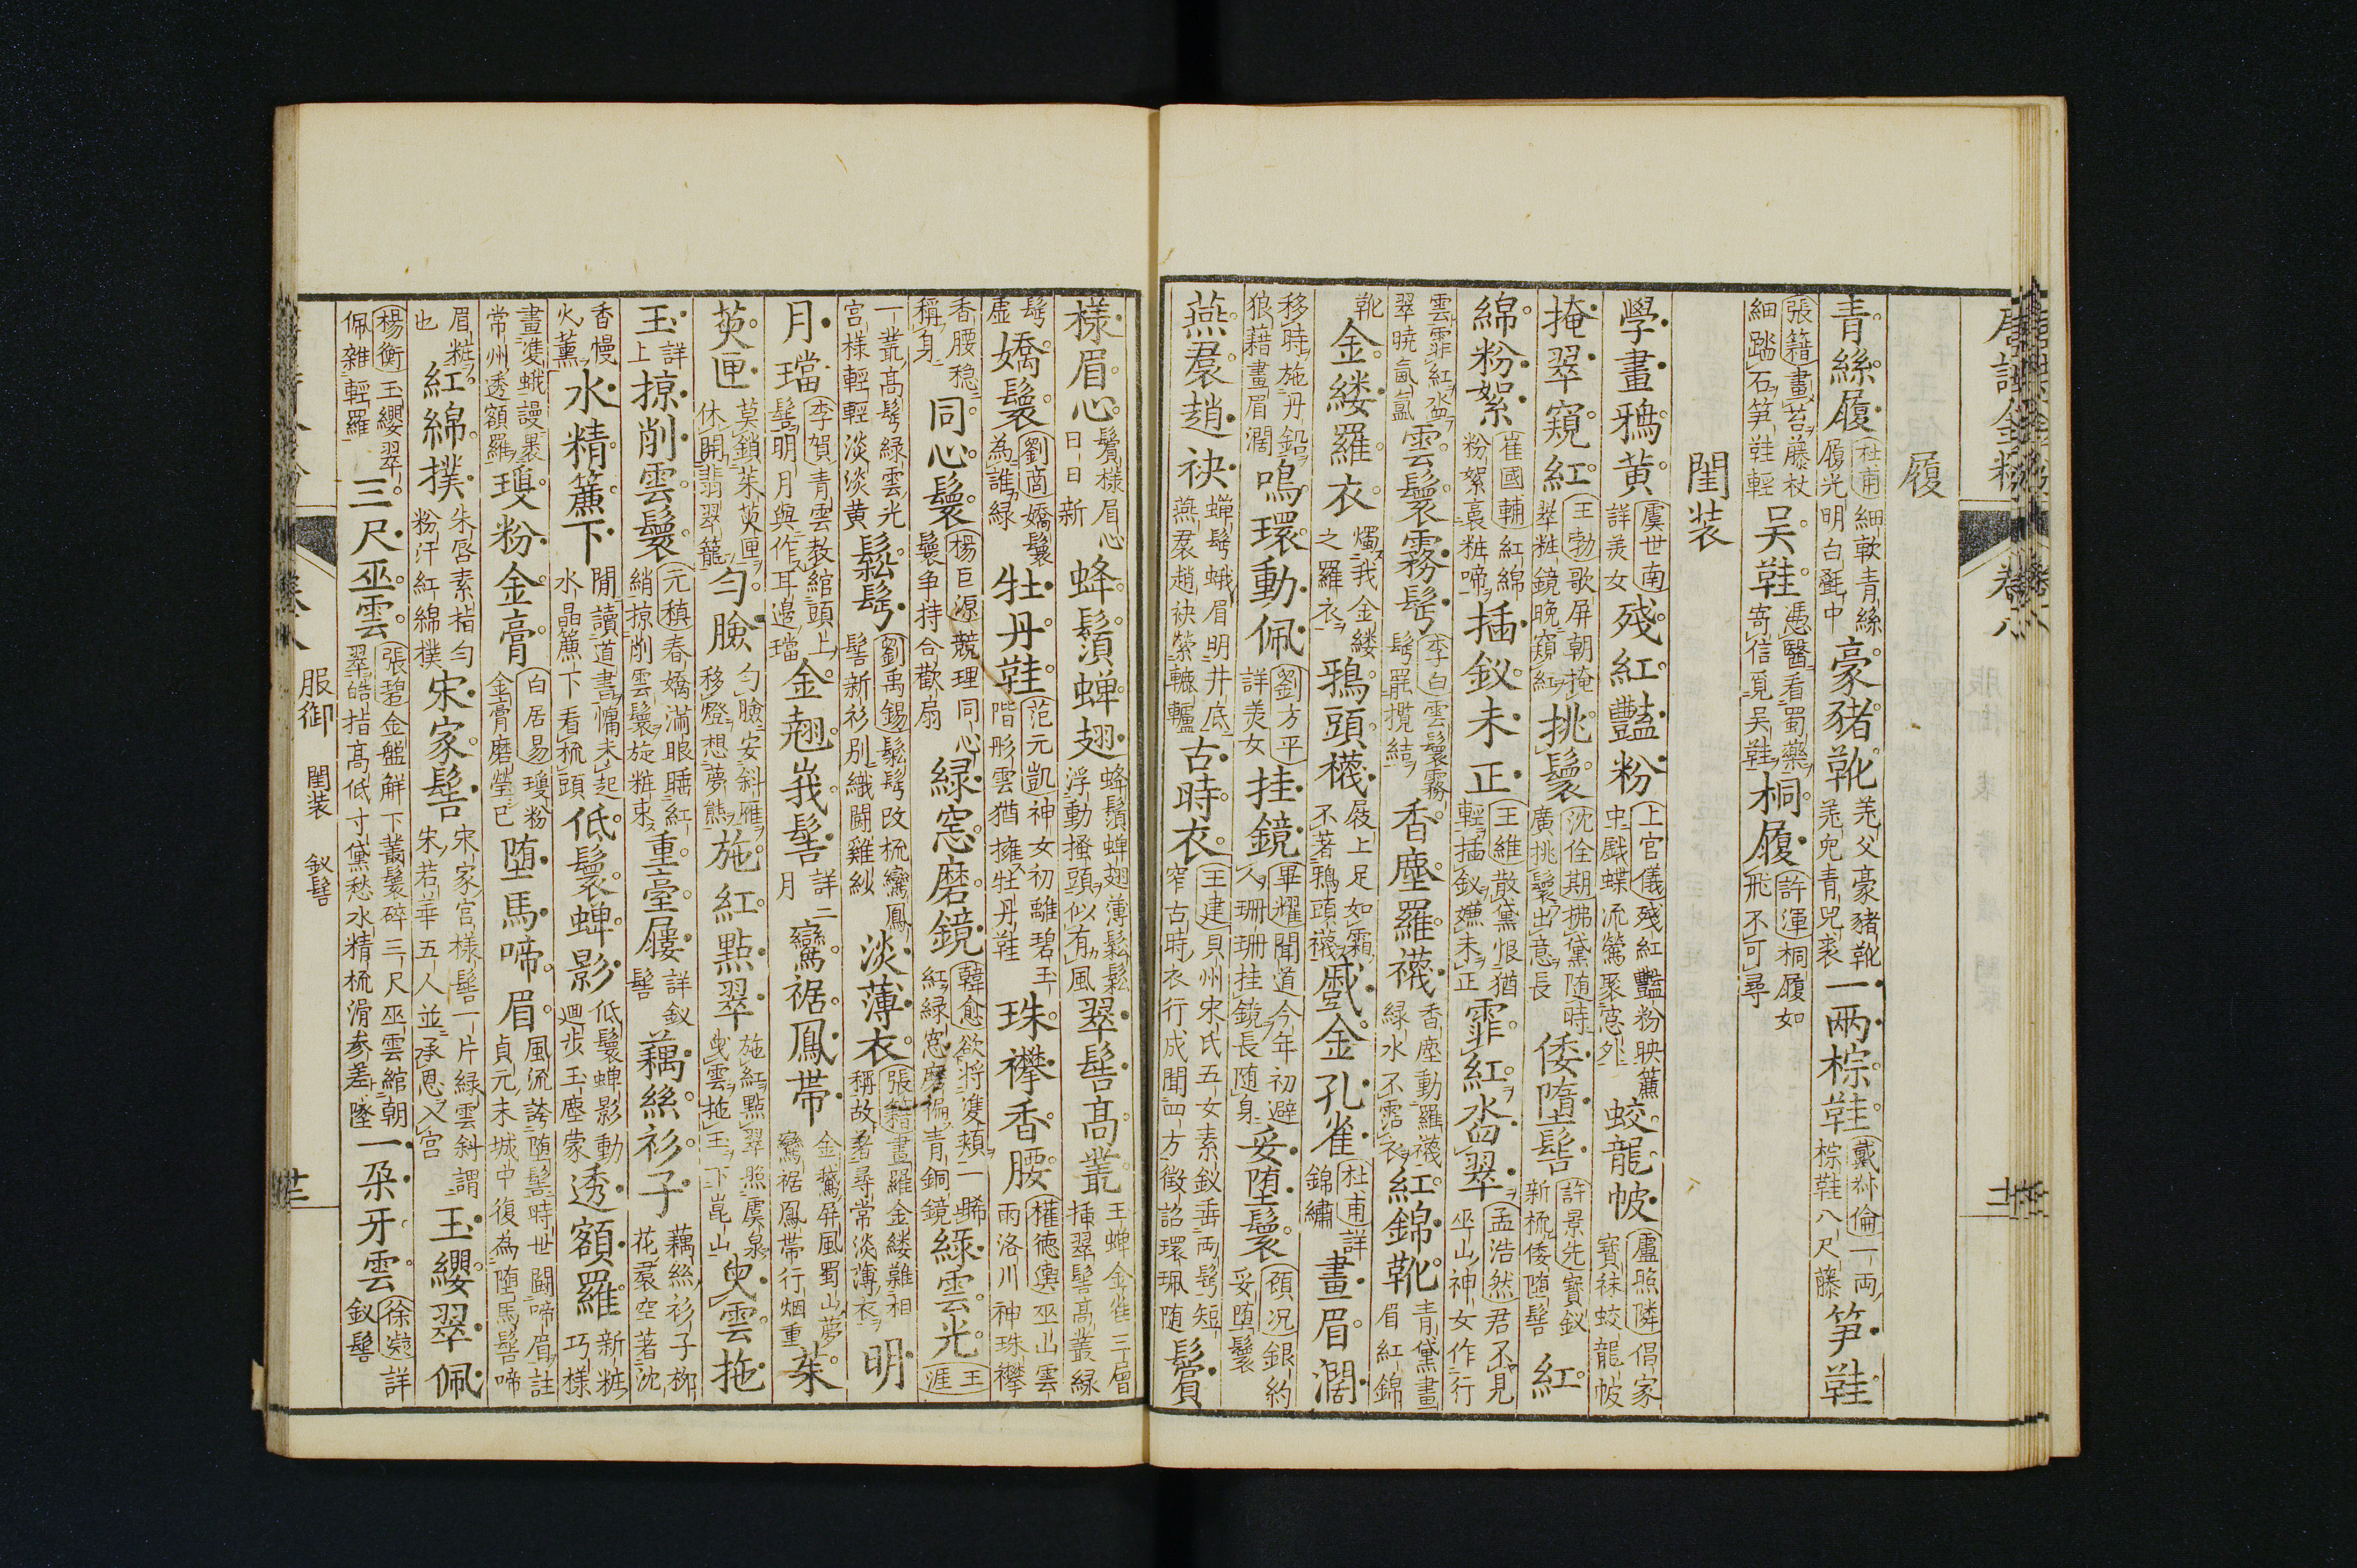 唐詩金粉 卷八
履
青絲履 杜甫 細軟青絲履光明白㲲中 豪豬靴 羌父豪豬靴羌兒青兕裘 一兩棕鞋 戴叔倫 一兩棕鞋八尺藤 笋鞋
張籍 畫苔藤杖細踏石笋鞋輕 吴鞋 憑醫看蜀藥寄信覓吴鞋 桐履 許渾 桐履如飛不可尋
閨装
學畫鴉黄 虞世南 詳美女 殘紅豔粉 上官儀 殘紅豔粉映簾中戯蝶流鶯聚窓外 蛟龍帔 盧照隣 倡家寳袜蛟龍帔
掩翠窺紅 王勃 歌屏朝掩翠粧鏡晩窺紅 挑鬟 沈佺期 拂黛随時廣挑鬟出意長 倭墮髻 許景先 寳釵新梳倭堕髻 紅
綿粉絮 崔國輔 紅綿粉絮裛粧啼 插釵未正 王維 散黛恨猶輕插釵嫌未正 霏紅沓翠 孟浩然 君不見巫山神女作行
雲霏紅沓翠曉氤氲 雲鬟霧髩 李白 雲鬟霧髩罷攬結 香塵羅襪 香塵動羅襪緑水不霑衣 紅錦靴 青黛畫眉紅錦
靴 金縷羅衣 燭我金縷之羅衣 鴉頭襪 屐上足如霜不著鴉頭襪 蹙金孔雀 杜甫 詳錦繡 畫眉濶
移時施丹鉛狼藉畫眉濶 鳴環動佩 劉方平 詳美女 挂鏡 畢耀 聞道今年初避人珊珊挂鏡長随身 妥堕鬟 顧况 銀約妥堕鬟
燕裙趙袂 蟬髩蛾眉明井底燕裙趙袂縈轆轤 古時衣 王建 貝州宋氏五女素釵垂両髩短窄古時衣行成聞四方徵詔環珮随 鬢
樣眉心 鬢樣眉心日日新 蜂鬚蟬翅 蜂鬚蟬翅薄鬆鬆浮動搔頭似有風 翠髻髙叢 王蟬金雀三層插翠髻髙叢緑
髩虚 嬌鬟 劉商 嬌鬟為誰緑 牡丹鞋 范元凱 神女初離碧玉階彤雲猶擁牡丹鞋 珠襻香腰 權徳輿 巫山雲雨洛川神珠襻
香腰稳稱身 同心鬟 楊巨源 競理同心鬟争持合歡扇 緑窓磨鏡 韓愈 欲将雙頬一晞紅緑窓磨徧青銅鏡 緑雲光 王涯
一叢髙髩緑雲光宫様輕輕淡淡黄 鬆髩 劉禹錫 鬆髩改梳鸞鳳髻新衫别織闘雞紗 淡薄衣 張籍 畫羅金縷難相稱故著尋常淡薄衣 明
月璫 李賀 青雲敎綰頭上髻明月與作耳邊璫 金翹峩髻 詳二月 鸞裾鳳帶 金鵞屏風蜀山夢鸞裾鳳帶行烟重 茱
萸匣 莫鎖茱萸匣休開翡翠籠 勻臉 勻臉安斜雁移燈想夢熊 施紅點翠 施紅點翠照虞泉曳雲拖玉下崑山 曳雲拖
玉 詳上 掠削雲鬟 元稹 春嬌滿眼睡紅綃掠削雲鬟旋粧束 重臺屨 詳釵髻 藕絲衫子 藕絲衫子柳花裙空著沈
香慢火薰 水精簾下 閒讀道書慵未起水晶簾下看梳頭 低鬟蟬影 低鬟蟬影動廻步玉塵蒙 透額羅 新粧巧様
畫雙蛾謾裹常州透額羅 瓊粉金膏 白居易 瓊粉金膏磨瑩已 堕馬啼眉 風流誇堕髻時世闘啼眉註貞元末城中復為堕馬髻啼
眉粧也 紅綿撲 朱唇素指勻粉汗紅綿撲 宋家髻 宋家宫様髻一片緑雲斜謂宋若華五人並承恩入宫 玉纓翠佩
楊衡 玉纓翠佩雜輕羅 三尺巫雲 張碧 金盤解下叢鬟碎三尺巫雲綰朝翠皓指髙低寸黛愁水精梳滑参差墜 一朶牙雲 徐凝 詳釵髻
服御 閨装 釵髻